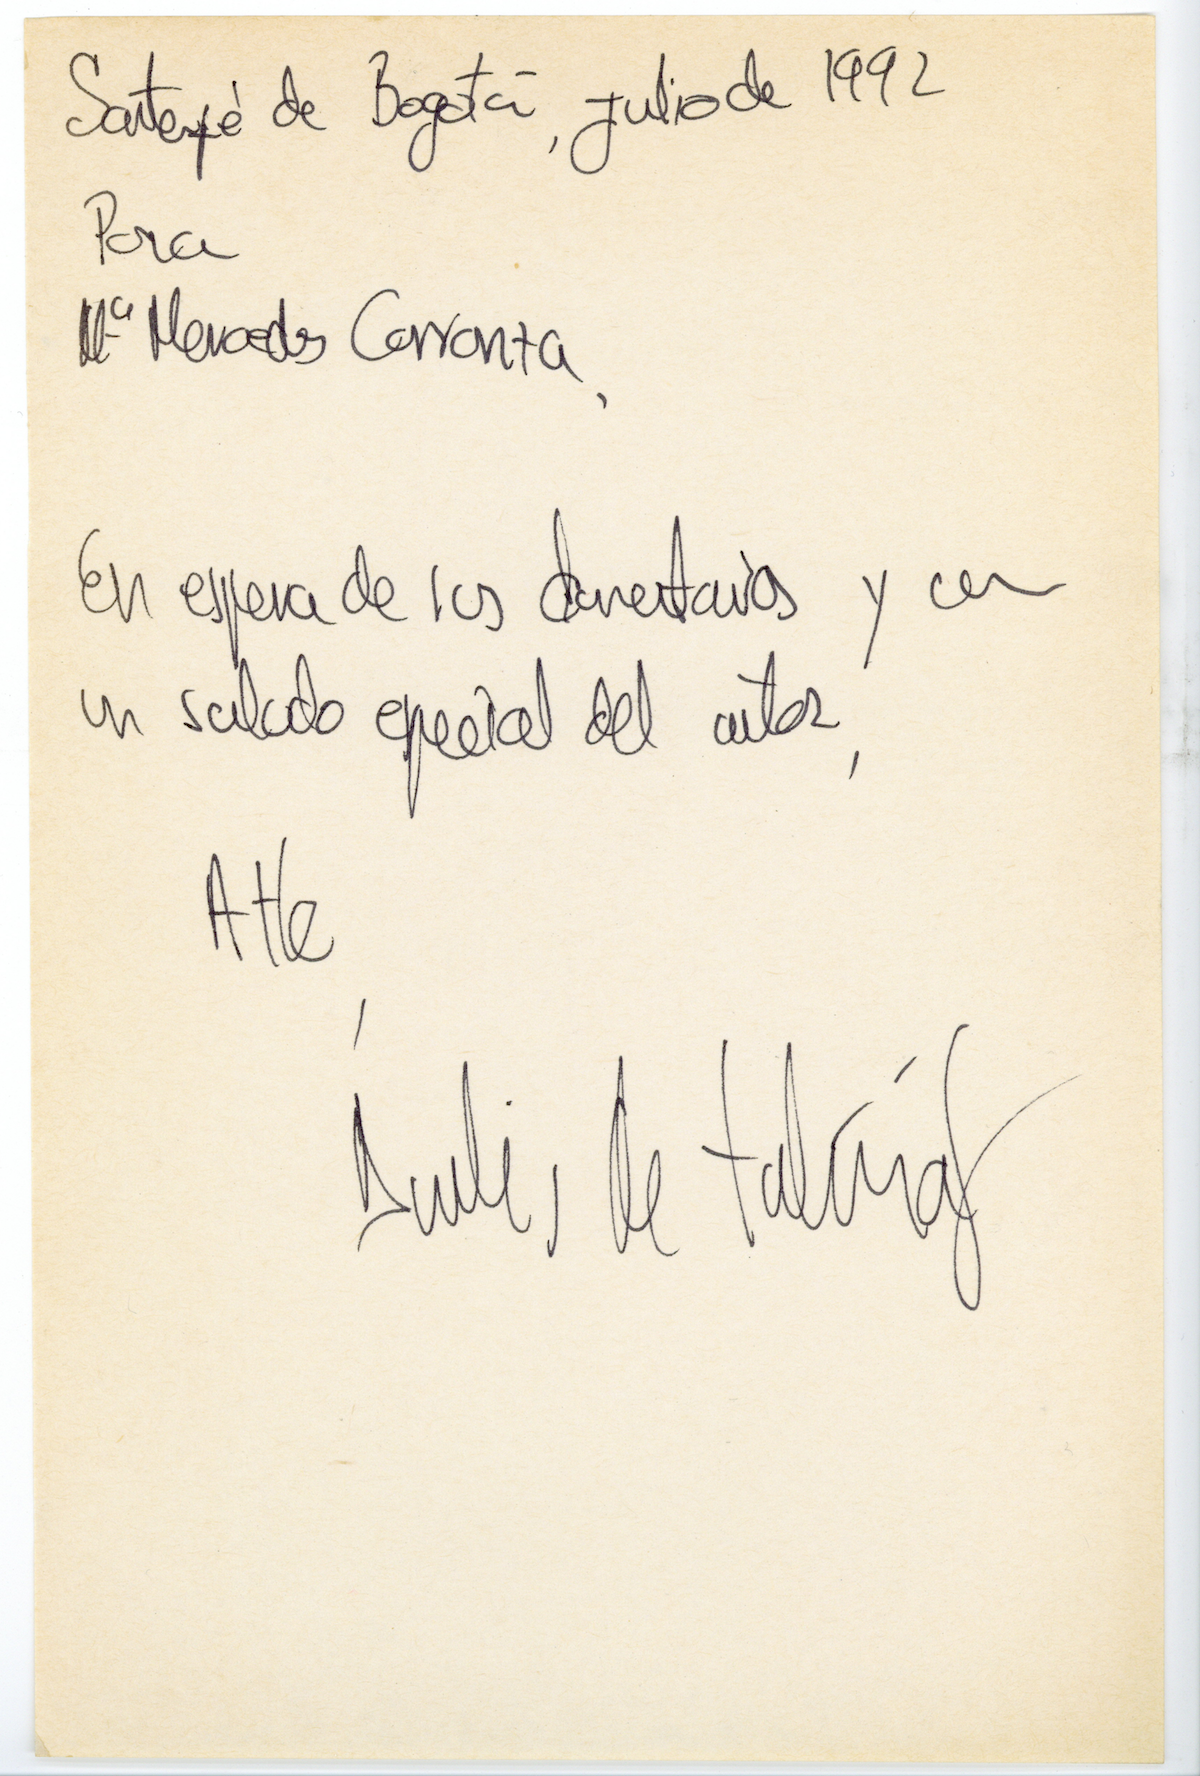 Santafé de Bogotá, julio de 1992
Para
Mª Mercedes Carranza,
En espera de los comentarios y con
un saludo especial del autor,
Atte
,
de